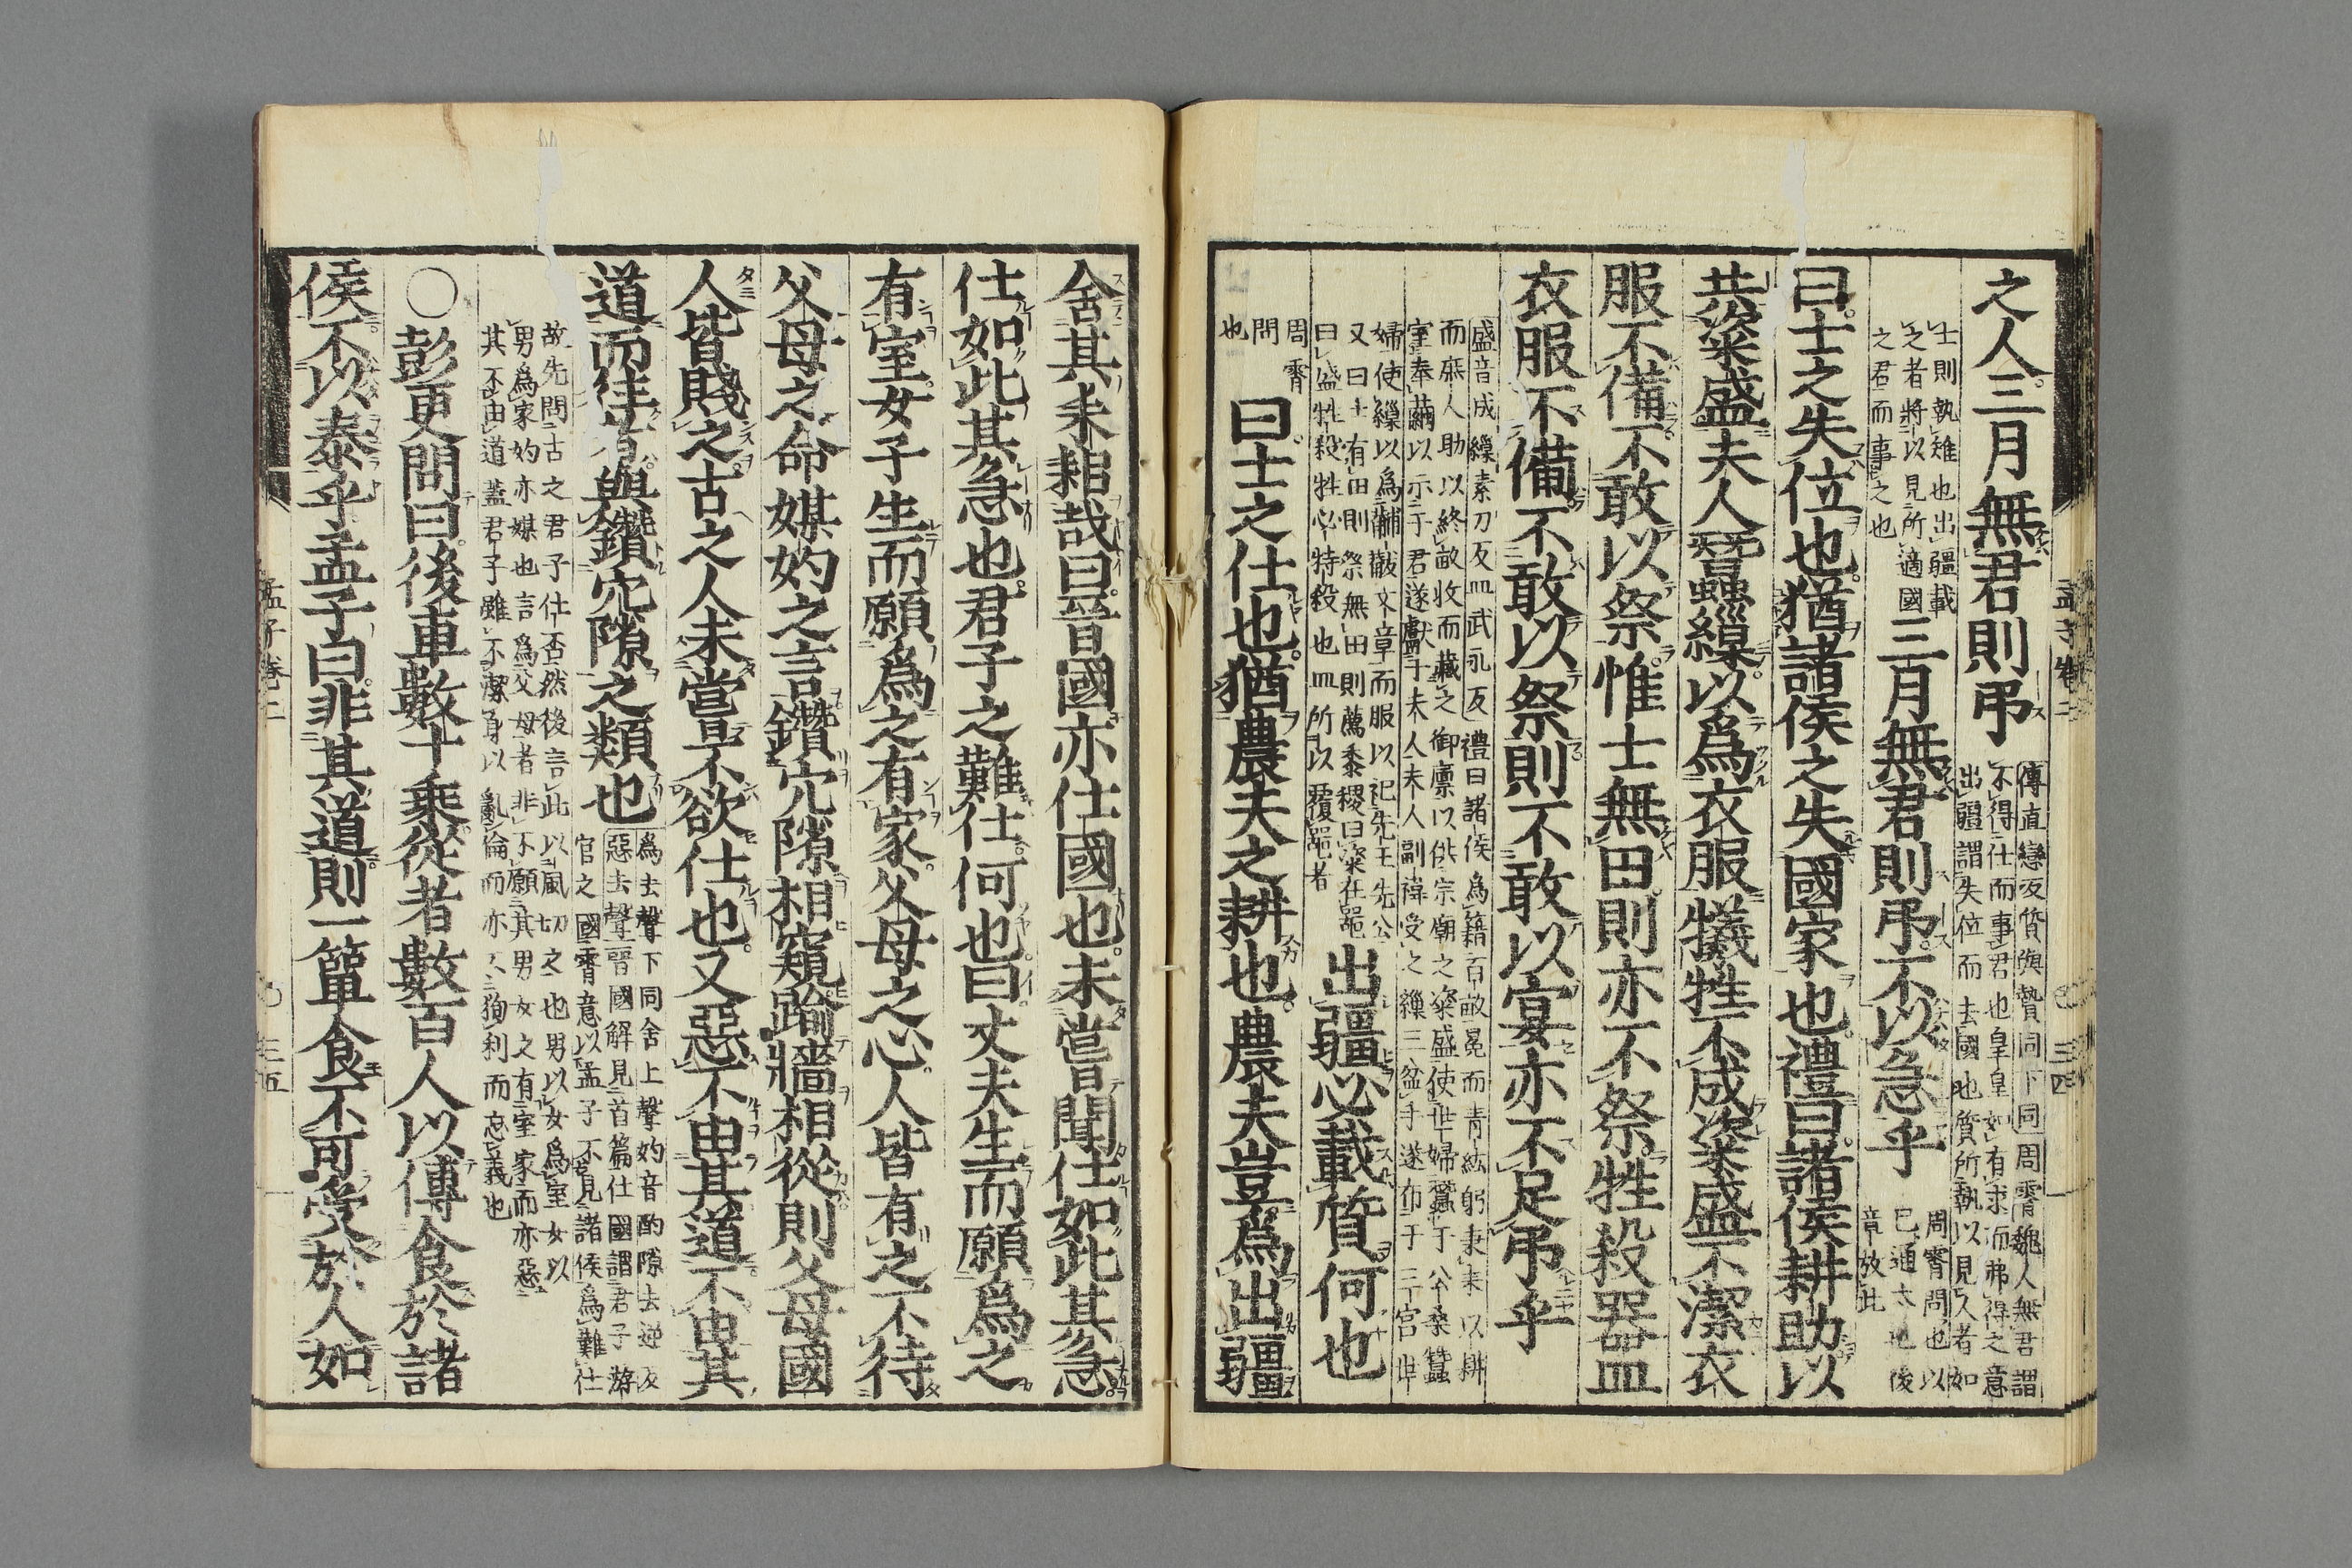 之人三月無君則弔
傳直戀反質與贄同下同周霄魏人無君謂
不得仕而事君也皇皇如有求而弗得之意
出疆謂失位而去國也質所執以見人者如
士則執雉也出疆載
之者將以見所適國
之君而事之也
三月無君則弔不以急乎
周霄問也以
已通太也後
章放此
曰士之失位也猶諸侯之失國家也禮曰諸侯耕助以
共粢盛夫人蠶繅以爲衣服犧牲不成粢盛不潔衣
服不備不敢以祭惟士無田則亦不祭牲殺器皿
衣服不備不敢以祭則不敢以宴亦不足弔乎
盛音成繅素刀反皿武永反禮曰諸侯爲籍百畝冕而青紘躬秉耒以耕
而庶人助以終畝收而藏之御廩以供宗廟之粢盛使世婦蠶于公桑蠶
室奉繭以示于君遂獻于夫人夫人副褘受之繅三盆手遂布于三宮世
婦使繅以爲黼黻文章而服以祀先王先公
又曰士有田則祭無田則薦黍稷曰粢在器
曰盛牲殺牲必特殺也皿所以覆器者
出疆必載質何也
周霄
問
也
曰士之仕也猶農夫之耕也農夫豈爲出疆
舍其耒耜哉曰晉國亦仕國也未嘗聞仕如此其急
仕如此其急也君子之難仕何也曰丈夫生而願爲之
有室女子生而願爲之有家父母之心人皆有之不待
父母之命媒妁之言鑽穴隙相窺踰牆相從則父母國
人皆賤之古之人未嘗不欲仕也又惡不由其道不由其
道而往者與鑽穴隙之類也
爲去聲下同舍上聲妁音酌隙去逆反
惡去聲晉國解見首篇仕國謂君子游
官之國霄意以孟子不見諸侯爲難仕
故先問古之君子仕否然後言此以風切之也男以女爲室女以
男爲家妁亦媒也言爲父母者非不願其男女之有室家而亦惡
其不由道蓋君子雖不潔身以亂倫而亦不狥利而忘義也
〇彭更問曰後車數十乘從者數百人以傳食於諸
侯不以泰乎孟子曰非其道則一簞食不可受於人如
孟子卷二
三四
孟子卷二
三五